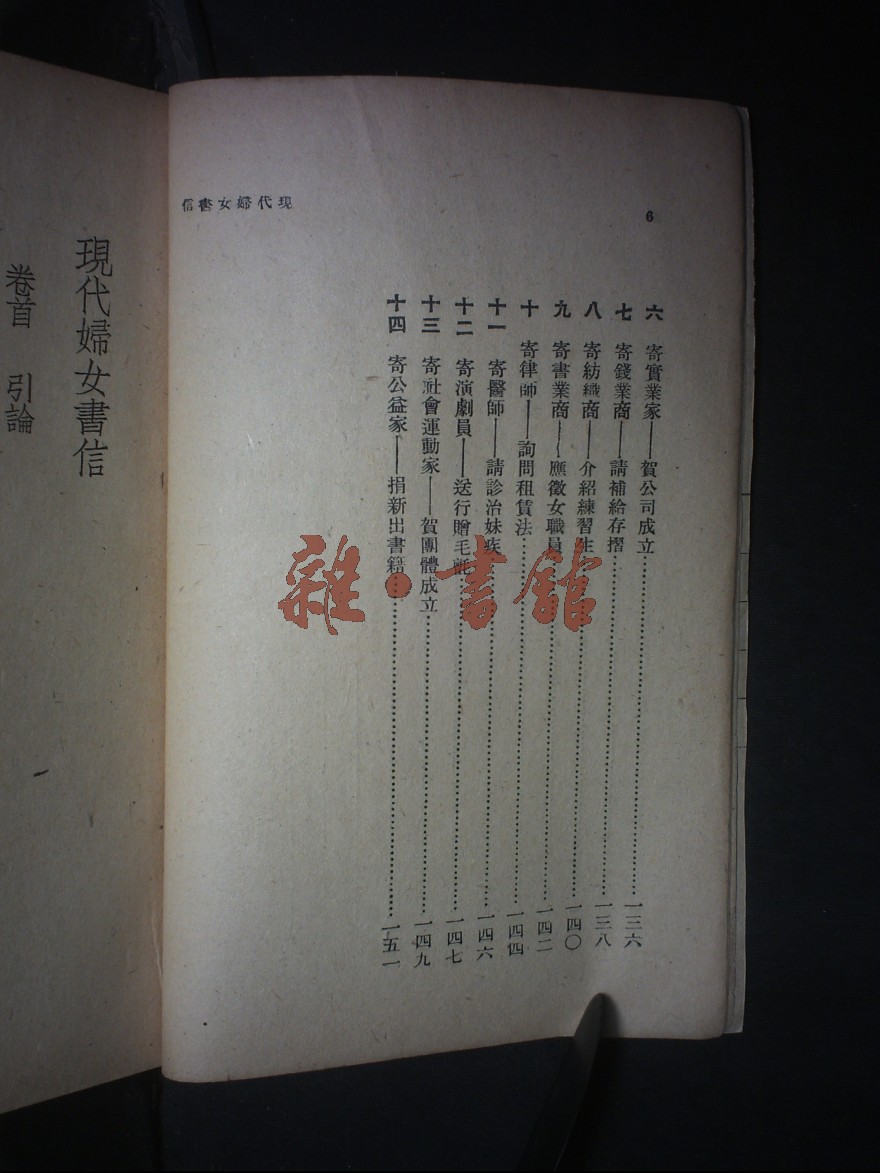 現代婦女書信
6
六 寄實業家——賀公司成立……一三六
七 寄錢業商——請補給存摺……一三八
八 寄紡織商——介紹練習生……一四〇
九 寄書業商——應徵女職員……一四二
十 寄律師——詢問租賃法……一四四
十一 寄醫師——請診治妹疾……一四六
十二 寄演劇員——送行贈毛毯……一四七
十三 寄社會運動家——賀團體成立……一四九
十四 寄公益家——捐新出書籍……一五一
現代婦女書信
卷首 引論
雜·書館